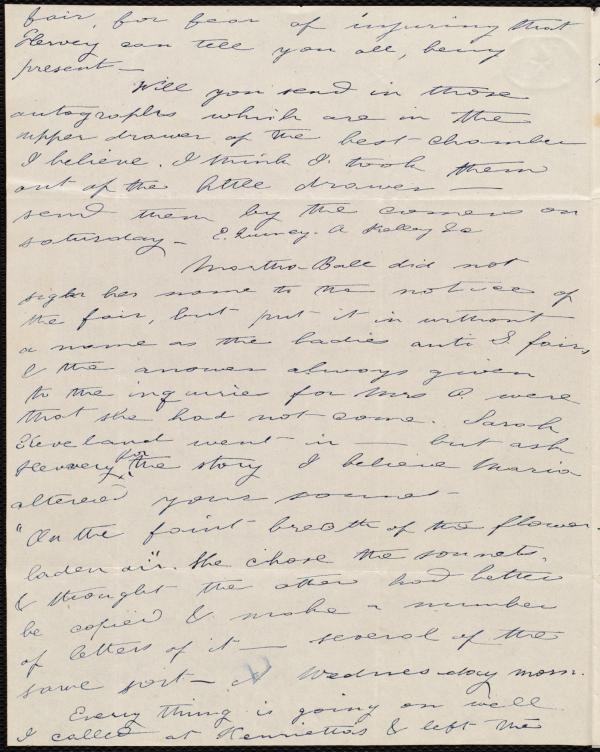 fair, for fear of injuring that
Hervey can tell you all, being
present—
Will you send in those
autographs which are in the
upper drawer of the best chamber
I believe. I think I took them
out of the little drawer —
send them by the comers on
saturday— E. Quincy. A Kelley &c
Martha Ball did not
sign her name to the notice of
the fair, but put it in without
a name as the ladies anti S fair,
& the answer always given
to the inquiries for Mrs C. were
that she had not come. Sarah
Cleveland went in — but ask
Hervey for the story I believe Maria
altered your sonnet—
"On the faint breath of the flower
laden air". She chose the sonnets,
& thought the other had better
be copied & make a number
of letters of it — several of the
same sort — Wednesday morn.
Every thing is going on well
I called at Henriettas & left the